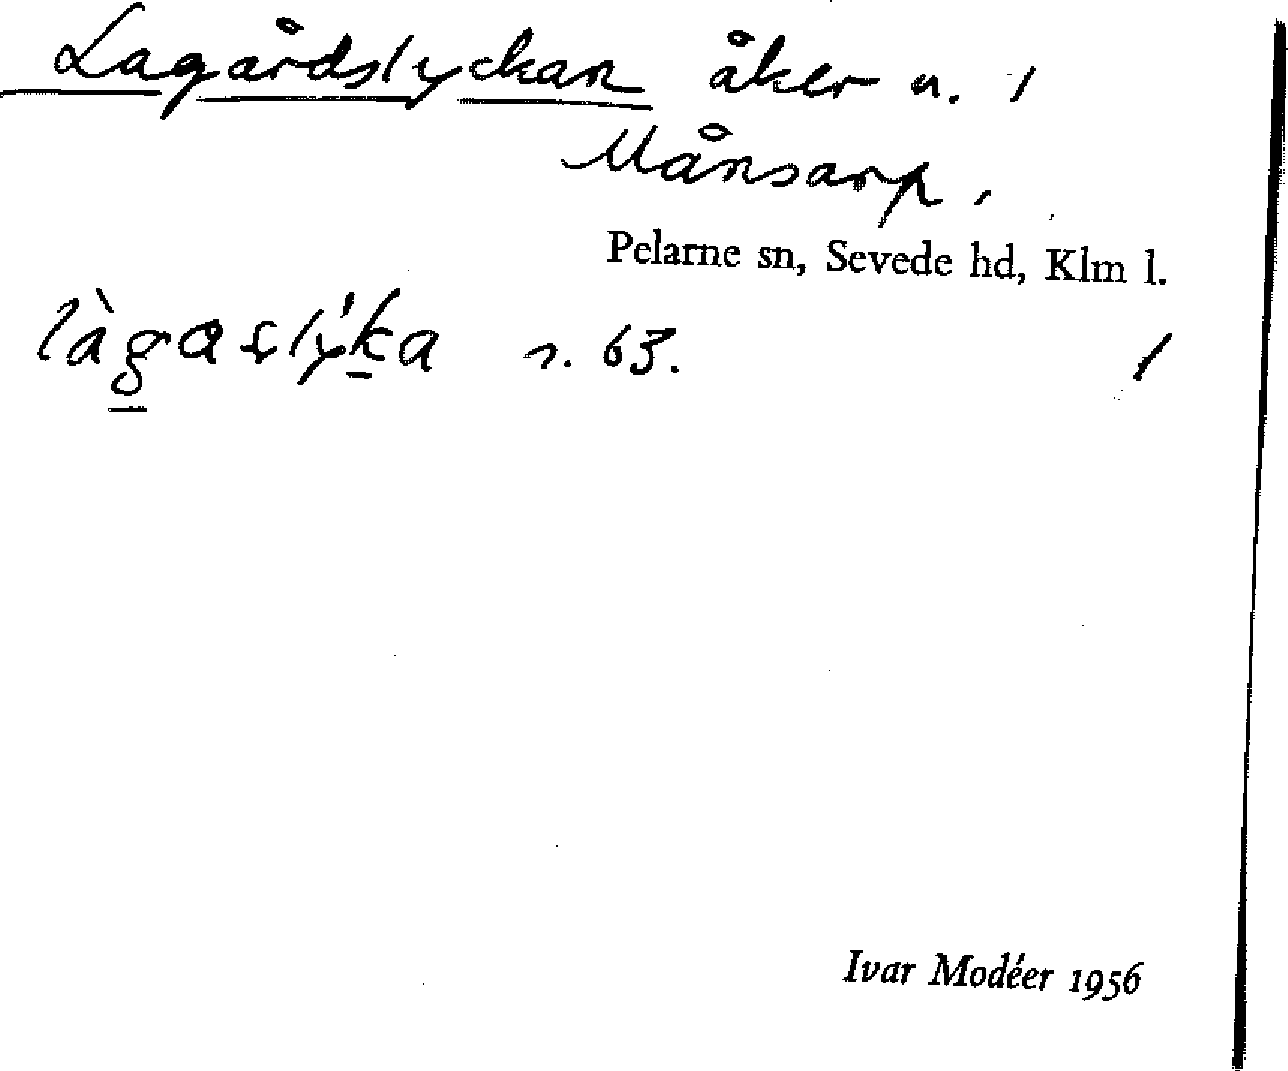 Lagårdslyckan åker u. 1
Månsarp.
Pelarne sn, Sevede hd, Klm l.
làgaslýka s. 63. 1
Ivar Modéer 1956